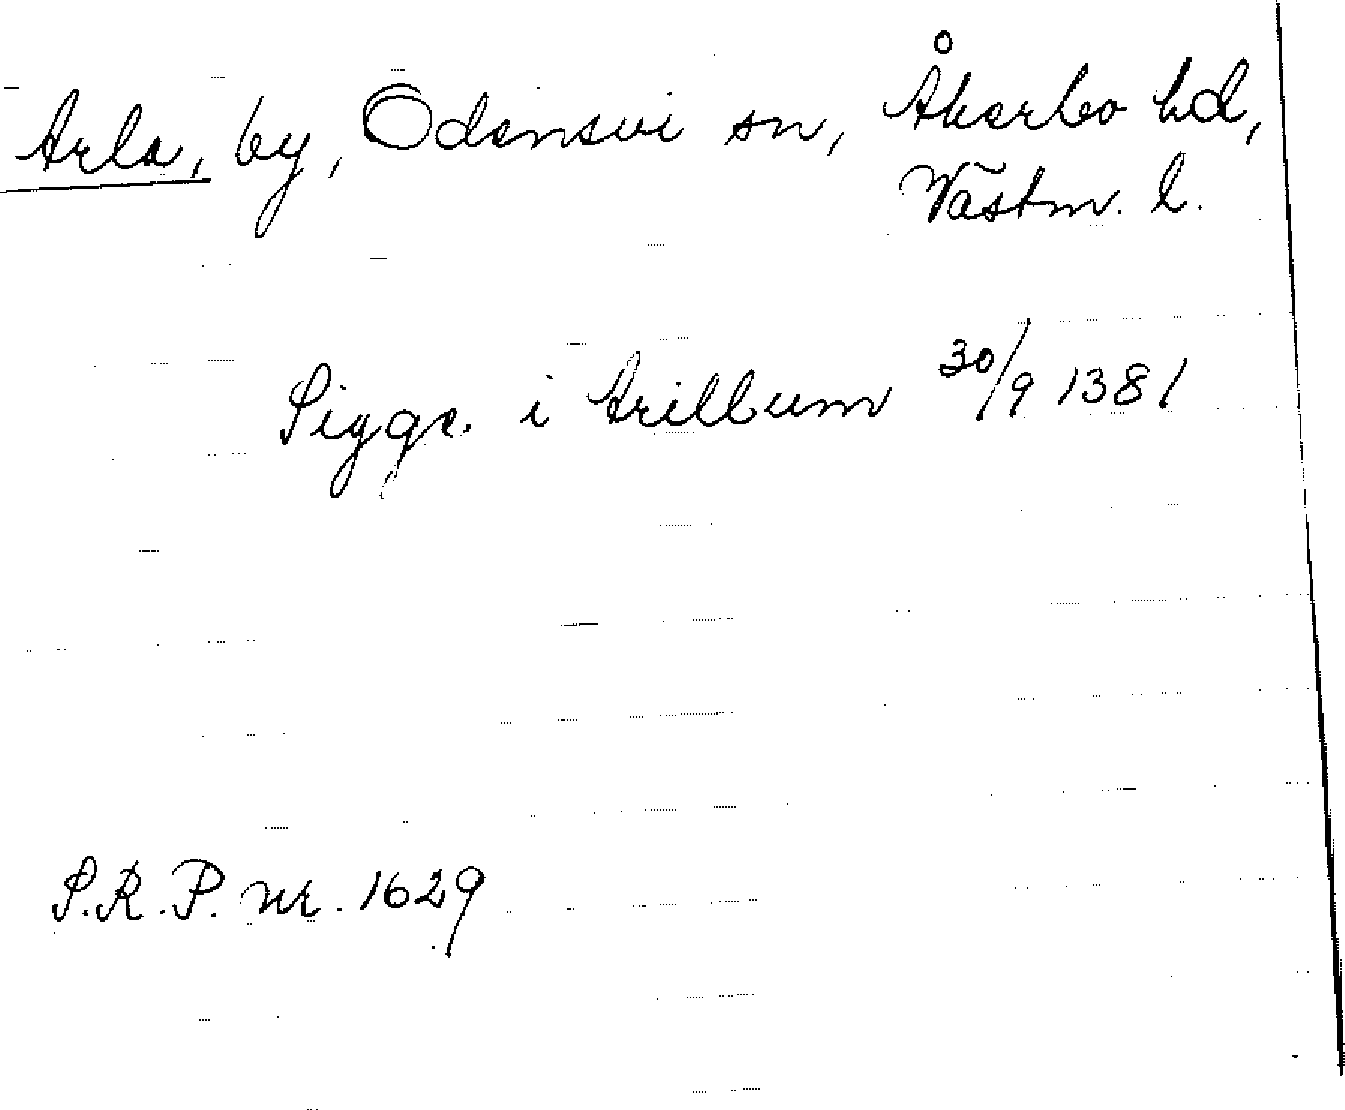 Arla, by, Ödensvi sn, Åkerbo hd,
Västm. l.
Sigge. i Arillbum 30/9 1381
S.R.P. nr. 1629